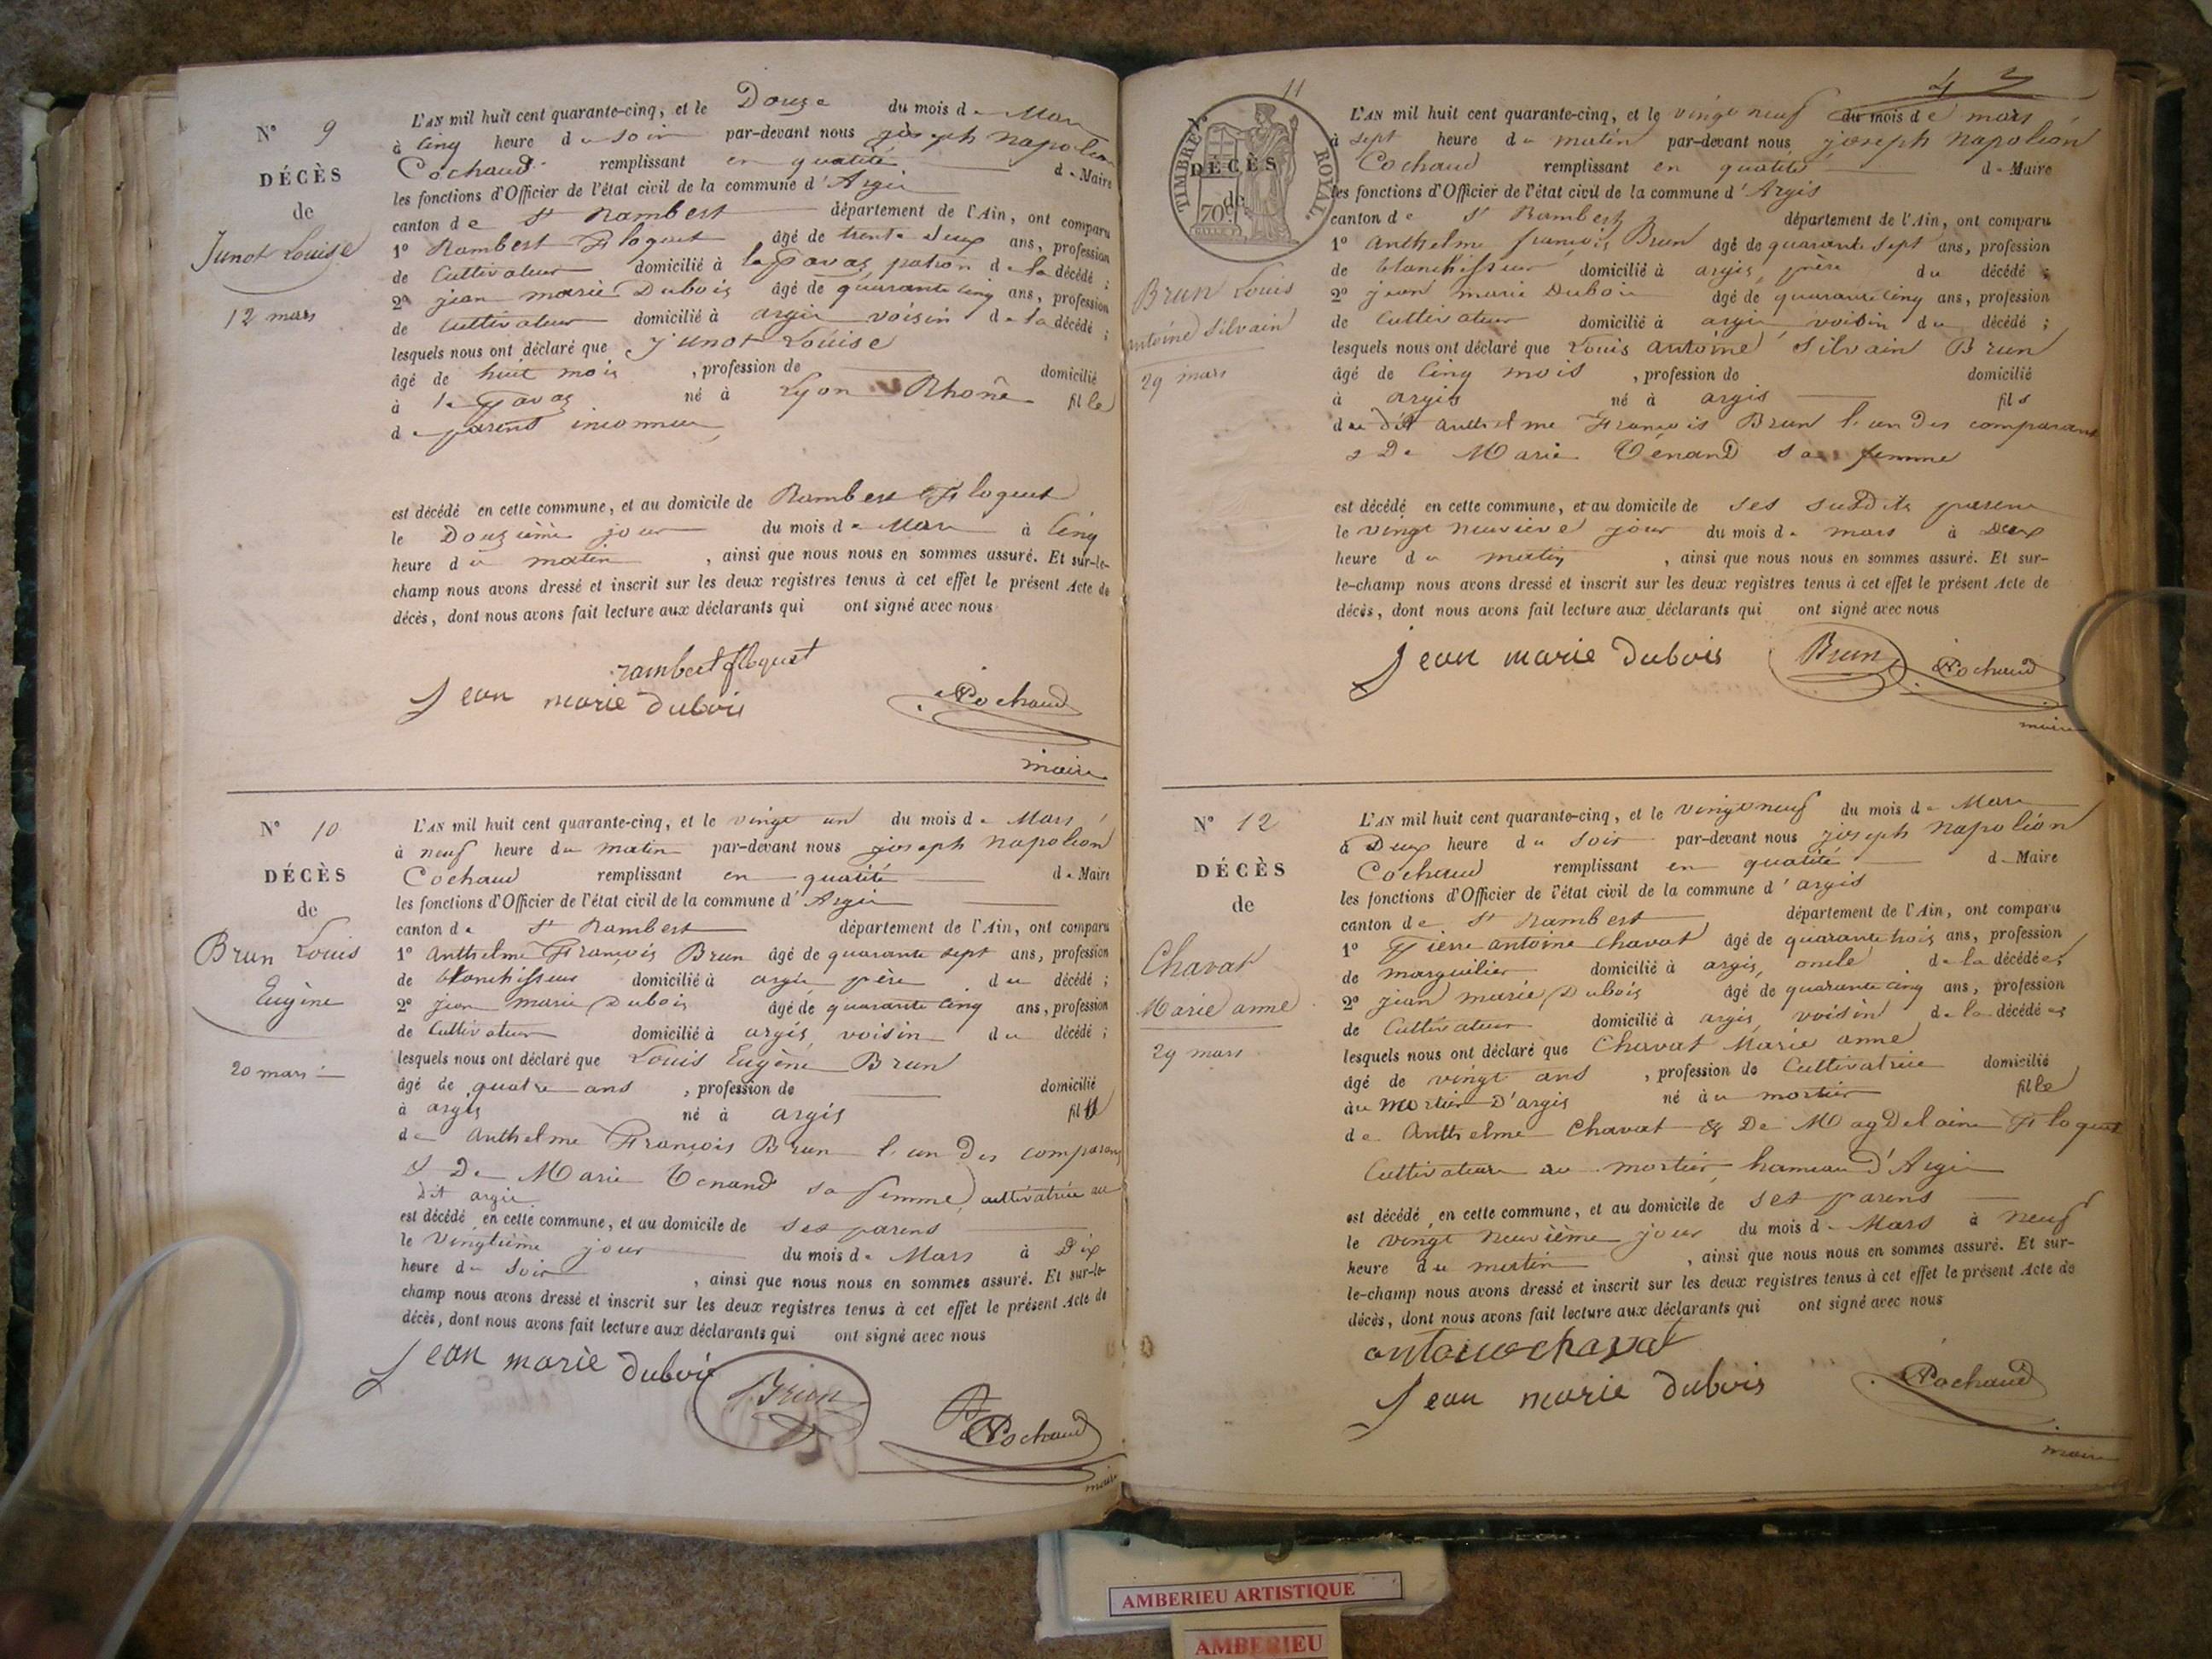 N° 9
DÉCÈS
de
Junot Louise
12 mars
L'AN mil huit cent quarante-cinq, et le Douze du mois de Mars
à Cinq heure du soir par-devant nous joseph Napoléon
Cochaud remplissant en qualité de Maire
les fonctions d'Officier de l'état civil de la commune d'Argis
canton de St Rambert département de l'Ain, ont comparu
1° Rambert Floquet âgé de trente deux ans, profession
de Cultivateur domicilié à la Pavaz patron de la décédé ;
2° jean marie Dubois âgé de quarante cinq ans, profession
de cultivateur domicilié à argis voisin de la décédé ;
lesquels nous ont déclaré que Junot Louise
âgé de huit mois , profession de domicilié
à la Pavaz né à Lyon Rhône fille
de parents inconnus
est décédé en cette commune, et au domicile de Rambert Floquet
le Douzième jour du mois de Mars à Cinq
heure du matin , ainsi que nous nous en sommes assuré. Et sur-le-
champ nous avons dressé et inscrit sur les deux registres tenus à cet effet le présent Acte de
décès, dont nous avons fait lecture aux déclarants qui ont signé avec nous
rambert floquet
Jean marie dubois
Cochaud
maire
N° 10
DÉCÈS
de
Brun Louis
Eugène
20 mars
L'AN mil huit cent quarante-cinq, et le vingt un du mois de Mars
à neuf heure du matin par-devant nous joseph Napoléon
Cochaud remplissant en qualité de Maire
les fonctions d'Officier de l'état civil de la commune d'Argis
canton de St Rambert département de l'Ain, ont comparu
1° Anthelme François Brun âgé de quarante sept ans, profession
de blanchisseur domicilié à argis père du décédé ;
2° jean marie Dubois âgé de quarante cinq ans, profession
de Cultivateur domicilié à argis voisin du décédé ;
lesquels nous ont déclaré que Louis Eugène Brun
âgé de quatre ans , profession de domicilié
à argis né à argis fil
de Anthelme François Brun l'un des comparans
& De Marie Tenand sa femme, cultivatrice au
dit argis
est décédé en cette commune, et au domicile de ses parens
le Vingtième jour du mois de Mars à Dix
heure du soir , ainsi que nous nous en sommes assuré. Et sur-le-
champ nous avons dressé et inscrit sur les deux registres tenus à cet effet le présent Acte de
décès, dont nous avons fait lecture aux déclarants qui ont signé avec nous
Jean marie dubois
Brun
Cochaud
maire
11
TIMBRE ROYAL
70c
DÉCÈS
de
Brun Louis
antoine Silvain
29 mars
L'AN mil huit cent quarante-cinq, et le vingt neuf du mois de mars
à sept heure du matin par-devant nous joseph Napoléon
Cochaud remplissant en qualité de Maire
les fonctions d'Officier de l'état civil de la commune d'Argis
canton de St Rambert département de l'Ain, ont comparu
1° Anthelme françois Brun âgé de quarante sept ans, profession
de blanchisseur domicilié à argis, père du décédé ;
2° jean marie Dubois âgé de quarante cinq ans, profession
de Cultivateur domicilié à argis voisin du décédé ;
lesquels nous ont déclaré que Louis Antoine Silvain Brun
âgé de Cinq mois , profession de domicilié
à argis né à argis fils
du dit Anthelme François Brun l'un des comparans
& De Marie Ténand sa femme
est décédé en cette commune, et au domicile de ses susdits parens
le vingt neuvième jour du mois de mars à Deux
heure du matin , ainsi que nous nous en sommes assuré. Et sur-
le-champ nous avons dressé et inscrit sur les deux registres tenus à cet effet le présent Acte de
décès, dont nous avons fait lecture aux déclarants qui ont signé avec nous
Jean marie dubois
Brun
Cochaud
maire
N° 12
DÉCÈS
de
Chavat
Marie anne
29 mars
L'AN mil huit cent quarante-cinq, et le vingt neuf du mois de Mars
à Deux heure du soir par-devant nous joseph Napoléon
Cochaud remplissant en qualité de Maire
les fonctions d'Officier de l'état civil de la commune d'argis
canton de St Rambert département de l'Ain, ont comparu
1° Pierre antoine Chavat âgé de quarante trois ans, profession
de marguilier domicilié à argis, oncle de la décédée ;
2° jean marie Dubois âgé de quarante cinq ans, profession
de Cultivateur domicilié à argis, voisin de la décédée
lesquels nous ont déclaré que Chavat Marie anne
âgé de vingt ans , profession de Cultivatrice domicilié
au Mortier D'argis né au mortier fille
de Anthelme Chavat & De Magdelaine Floquet
Cultivateurs au mortier hameau d'Argis
est décédé en cette commune, et au domicile de ses parens
le vingt neuvième jour du mois de Mars à neuf
heure du matin , ainsi que nous nous en sommes assuré. Et sur-
le-champ nous avons dressé et inscrit sur les deux registres tenus à cet effet le présent Acte de
décès, dont nous avons fait lecture aux déclarants qui ont signé avec nous
antoine chavat
Jean marie dubois
Cochaud
maire
AMBERIEU ARTISTIQUE
AMBERIEU